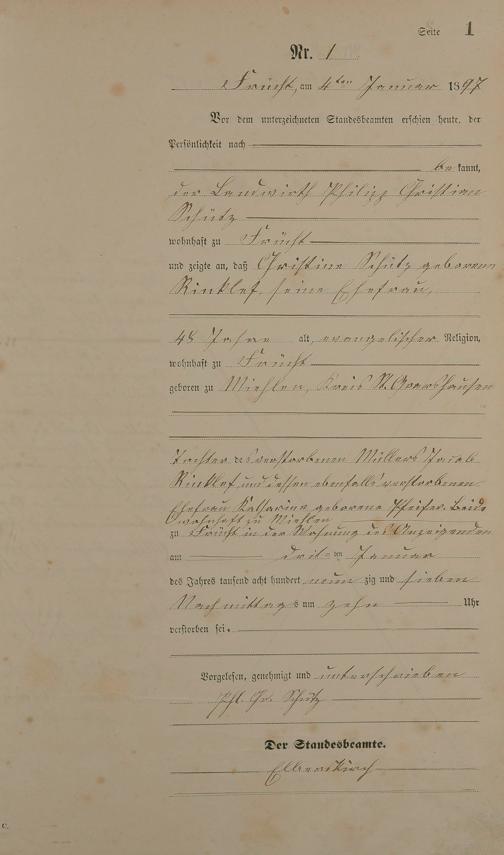 Seite 1
Nr. 1
Frücht, am 4ten Januar 1897
Vor dem unterzeichneten Standesbeamten erschien heute, der
Persönlichkeit nach
be kannt,
der Landwirth Philipp Christian
Schütz
wohnhaft zu Frücht
und zeigte an, daß Christine Schütz geborenen
Rinklef, seine Ehefrau,
48 Jahre alt, evangelischer Religion,
wohnhaft zu Frücht
geboren zu Miehlen, Kreis St. Goarshausen
Tochter des verstorbenen Müllers Jacob
Rinklef und dessen ebenfalls verstorbenen
Ehefrau Katharine geborene Pfeifer. Beide
wohnhaft zu Miehlen
zu Frücht in der Wohnung des Anzeigenden
am dritten Januar
des Jahres tausend acht hundert neun zig und sieben
Nachmittags um zehn Uhr
verstorben sei.
Vorgelesen, genehmigt und unterschrieben
Phl. Chr. Schütz
Der Standesbeamte.
C.